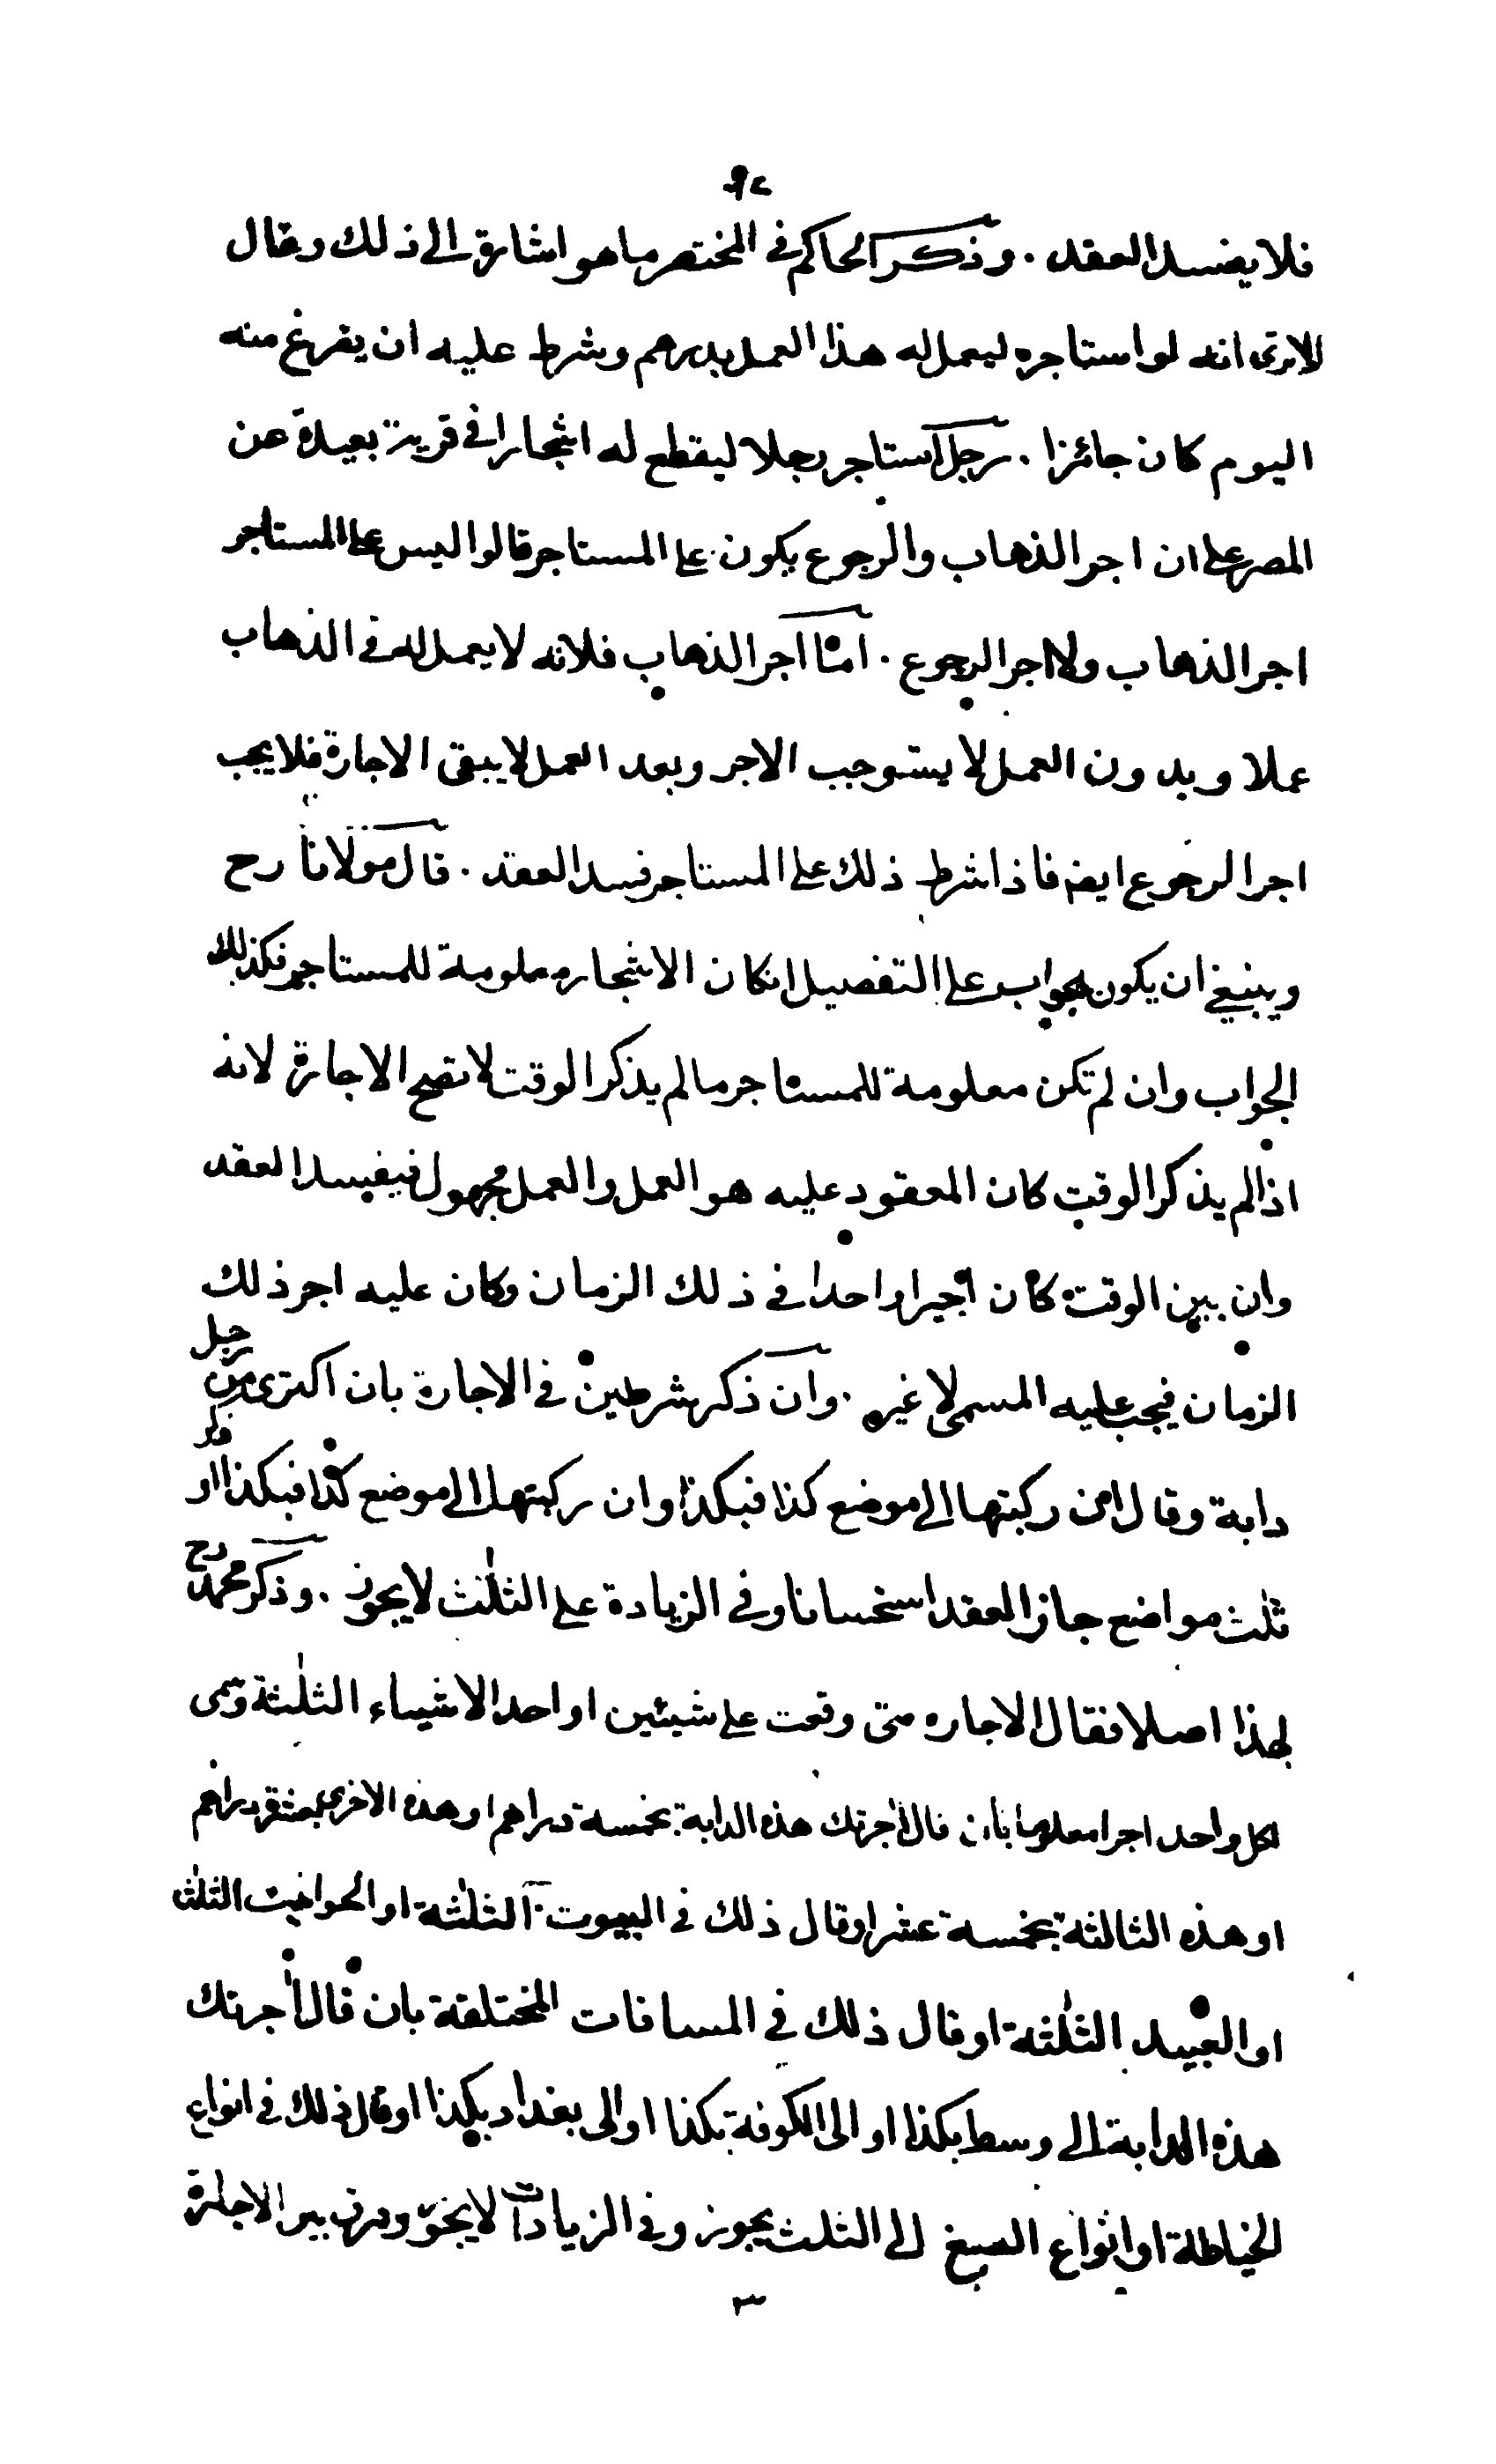 فلا يفسد العقد . وذكر الحاكم في المختصر ما هو اشارة الى ذلك وقال
الا ترى انه لو استاجره ليعمل له هذا العمل بدرهم وشرط عليه ان يفرغ منه
اليوم كان جائزا . رجل استاجر رجلا ليقطع له اشجارا في قرية بعيدة عن
المصر على ان اجر الذهاب والرجوع يكون على المستاجر قالوا ليس على المستاجر
اجر الذهاب ولا اجر الرجوع . امّا اجر الذهاب فلانه لا يعمل له في الذهاب
عملا وبدون العمل لا يستوجب الاجر وبعد العمل لا يبقى الاجارة فلا يجب
اجر الرجوع ايض فاذا شرط ذلك على المستاجر فسد العقد . قال مولانا رح
وينبغي ان يكون الجواب على التفصيل ان كان الاشجار معلومة للمستاجر فكذلك
الجواب وان لم تكن معلومة للمستاجر ما لم يذكر الوقت لا تصح الاجارة لانه
اذا لم يذكر الوقت كان المعقود عليه هو العمل والعمل مجهول فيفسد العقد
وان بين الوقت كان اجيرا واحدا في ذلك الزمان وكان عليه اجر ذلك
الزمان فيجب عليه المسمى لا غير . وان ذكر شرطين في الاجارة بان اكترى من رجل
دابة وقال ان ركبتها الى موضع كذا فبكذا وان ركبتها الى موضع كذا فبكذا او ذكر
ثلٰث مواضع جاز العقد استحسانا وفي الزيادة على الثلٰث لا يجوز . وذكر محمد رح
لهذا اصلا فقال الاجاره متى وقعت على شيئين او احد الاشياء الثلٰثة وسمى
لكل واحد اجرا معلوما بان قال اجرتك هذه الدابة بخمسة دراهم او هذه الاخرى بعشرة دراهم
او هذه الثالثة بخمسة عشر او قال ذلك في البيوت الثلٰثة او الحوانيت الثلٰث
او العبيد الثلٰثة او قال ذلك في المسافات المختلفة بان قال اجرتك
هذه الدابة الى وسط بكذا او الى الكوفة بكذا او الى بغداد بكذا او قال ذلك في انواع
الخياطة او انواع الصبغ الى الثلث يجوز وفي الزيادة لا يجوز وفرق بين الاجارة